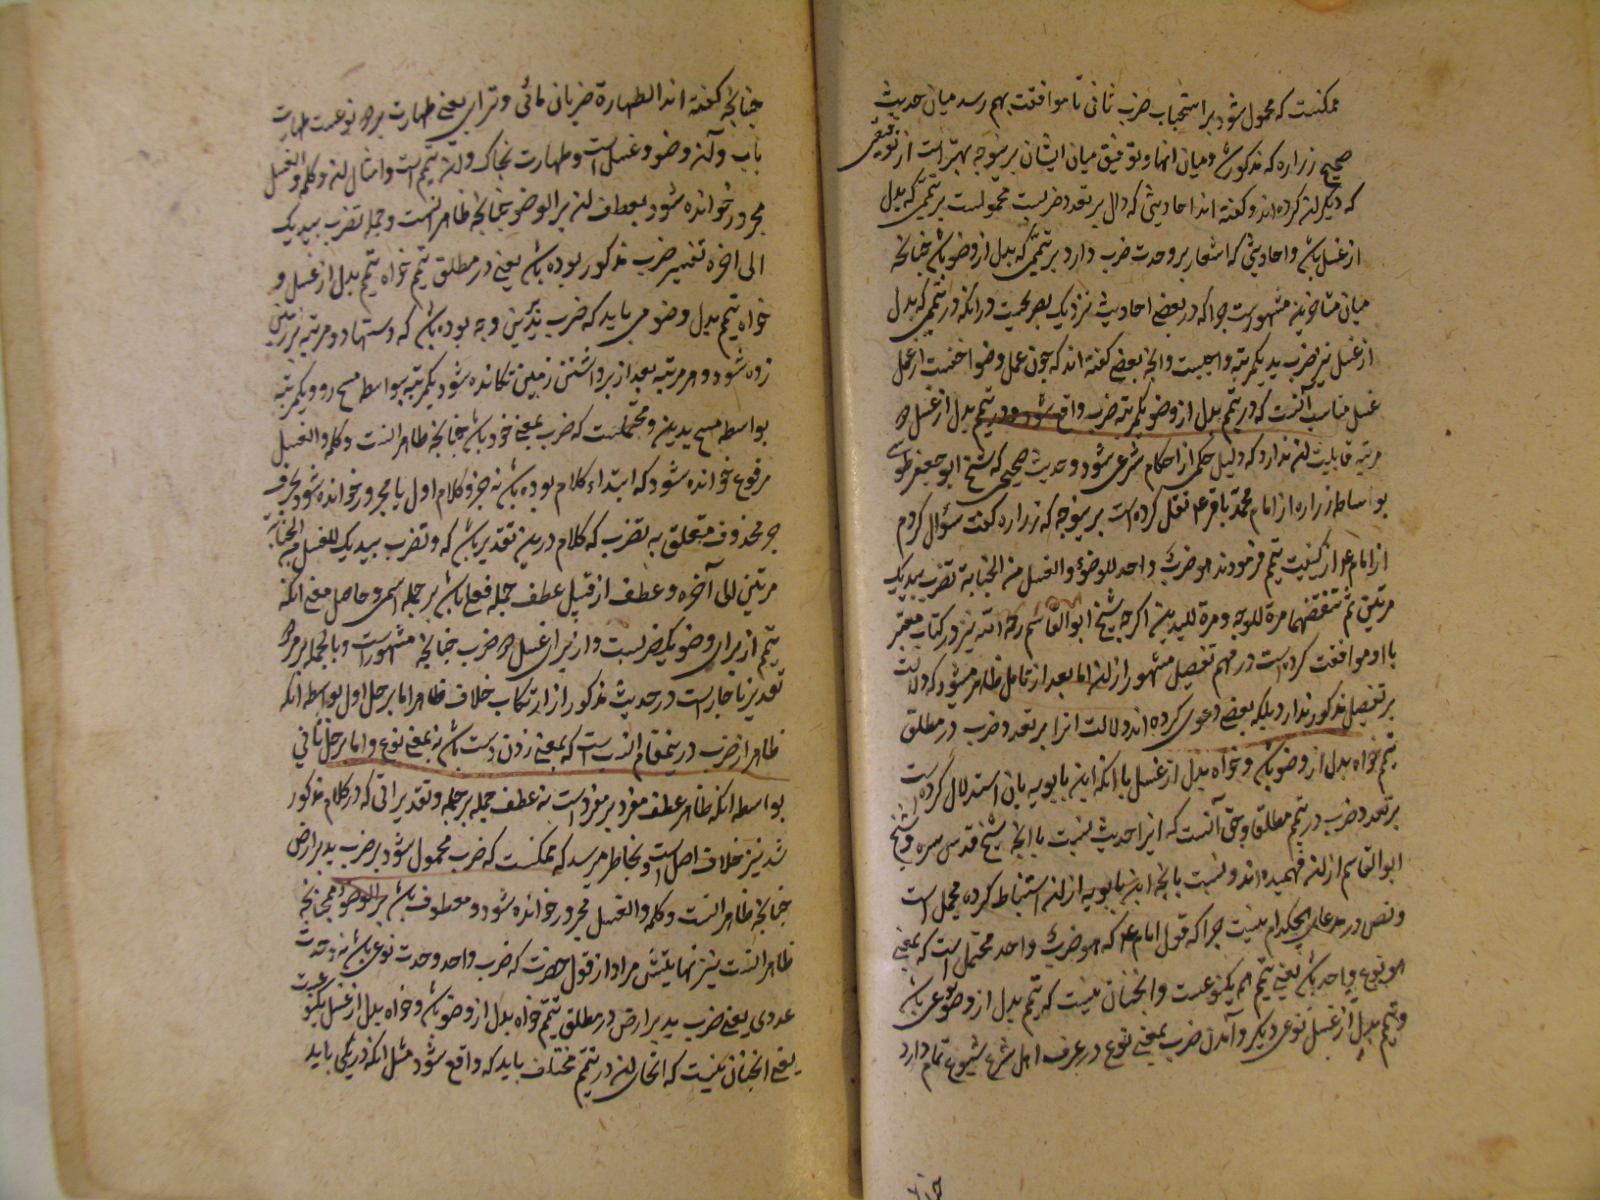 ممکنست که محمول شود بر استحباب ضرب ثانی تا موافقت بهم رسد میان حدیث
صحیح زراره که مذکور شد و میان اینها و توفیق میان ایشان برینوجه بهتر است از توفیقی
که دیگران کرده‌اند و گفته اند احادیثی که دال بر تعدد ضربست محمولست بر تیممی که بدل
از غسل باشد و احادیثی که اشعار بر وحدت ضرب دارد بر تیممی که بدل از وضو باشد چنانچه
میان متاخرین مشهور است چرا که در بعضی احادیث نزدیک بصریحست در انکه در تیممی که بدل
از غسل نیز ضرب ید یکمرتبه واجبست و انچه بعضی گفته اند که چون عمل وضو اخفست از عمل
غسل مناسب آنست که در تیمم بدل از وضو یکمرتبه ضرب واقع شود و در تیمم بدل از غسل دو
مرتبه قابلیت ان ندارد که دلیل حکمی از احکام شرعی شود و حدیث صحیحی که شیخ ابو جعفر طوسی
بوساطه زراره از امام محمد باقر ع نقل کرده است برینوجه که زراره گفت سؤال کردم
از امام ع از کیفیت تیمم فرمودند هو ضرب واحد للوضوء والغسل من الجنابة تضرب بیدیک
مرتین ثم تنفضهما مرة للوجه و مرة للیدین اگرچه شیخ ابو القاسم رحمه الله نیز در کتاب معتبر
با او موافقت کرده است در فهم تفصیل مشهور از ان اما بعد از تامل ظاهر میشود که دلالت
بر تفصیل مذکور ندارد بلکه بعضی دعوی کرده اند دلالت انرا بر تعدد ضرب در مطلق
تیمم خواه بدل از وضو باشد و خواه بدل از غسل با انکه ابن بابویه بان استدلال کرده است
بر تعدد ضرب در تیمم مطلق و حق آنست که این حدیث نسبت با انچه شیخ قدس سره و شیخ
ابو القاسم از ان فهمیده اند و نسبت بانچه ابن بابویه از ان استنباط کرده مجمل است
و نص در مدعای هیچکدام نیست چرا که قول امام ع که هو ضرب واحد محتمل است که بمعنی
هو نوع واحد باشد یعنی تیمم هم یکنوعست و انچنان نیست که تیمم بدل از وضو نوعی باشد
و تیمم بدل از غسل نوعی دیگر و آمدن ضرب بمعنی نوع در عرف اهل شرع شیوع تمام دارد
چنانچه گفته اند الطهارة ضربان مائی و ترابی یعنی طهارت بر دو نوعست طهارت
باب و آن وضو و غسل است و طهارت بخاک و ان تیمم است و امثال ان و کلمه والغسل
مجرور خوانده شود بعطف ان بر الوضو چنانچه ظاهر انست و جمله تضرب بیدیک
الی اخره تفسیر ضرب مذکور بوده باشد یعنی در مطلق تیمم خواه تیمم بدل از غسل و
خواه تیمم بدل وضو می باید که ضرب بدین وجه بوده باشد که دستها دو مرتبه بر زمین
زده شود و هر مرتبه بعد از برداشتن از زمین تکانده شود یکمرتبه بواسطه مسح رو و یکمرتبه
بواسطه مسح یدین و محتملست که ضرب بمعنی خود باشد چنانچه ظاهر انست و کلمه والغسل
مرفوع خوانده شود که ابتداء کلام بوده باشد نه جزو کلام اول یا مجرور خوانده شود بحرف
جر محذوف متعلق به تضرب که کلام درین تقدیر باشد که و تضرب بیدیک للغسل من الجنابة
مرتین الی آخره و عطف از قبیل عطف جمله فعلیه باشد بر جمله اسمی و حاصل معنی انکه
تیمم از برای وضو یکضربست و از برای غسل دو ضرب چنانچه مشهور است و بالجمله بر هر دو
تقدیر ناچار است در حدیث مذکور از ارتکاب خلاف ظاهر اما بر حل اول بواسطه انکه
ظاهر از ضرب درینمقام انست که بمعنی زدن دست باشد نه بمعنی نوع و اما بر حل ثانی
بواسطه انکه ظاهر عطف مفرد بر مفرد است نه عطف جمله بر جمله و تقدیراتی که در کلام مذکور
شد نیز خلاف اصل است و بخاطر میرسد که ممکنست که ضرب محمول شود بر ضرب ید بر ارض
چنانچه ظاهر انست و کلمه والغسل مجرور خوانده شود و معطوف باشد بر الوضوء همچنانچه
ظاهر انست نیز نهایتش مراد از قول حضرت که ضرب واحد وحدت نوعی باشد نه وحدت
عددی یعنی ضرب ید بر ارض در مطلق تیمم خواه بدل از وضو باشد و خواه بدل از غسل یکنوعست
یعنی انچنان نیست که اتحای ان در تیمم مختلف باید که واقع شود مثل انکه در یکی باید